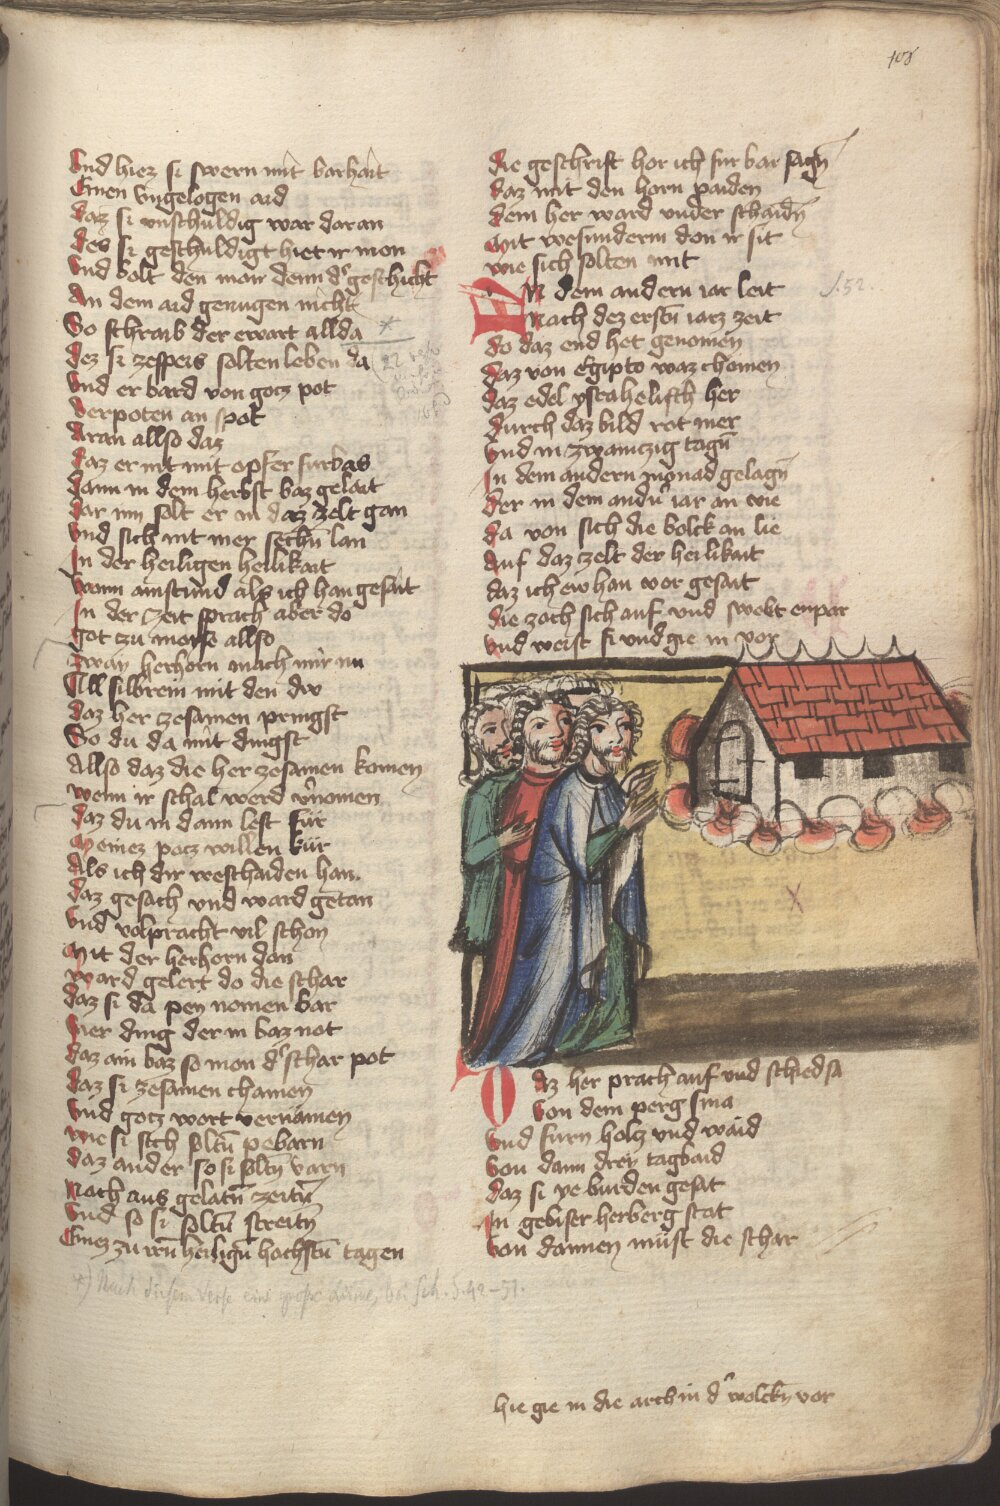 108
Vnd hiez si swern mit barhait
Einen vngelogen aid
Daz si vnschuldig war daran
Des si geschuldigt hiet ir mon
Vnd bolt den mon denn d' geschicht
An dem aid genugen nicht
So schraib der ewart allda
Dez si zespeis solten leben da
Vnd er bard von gotz pot
Verpoten an spot
Aran allso daz
Daz er nit mit opfer furbas
Dann in dem herbst baz gelait
Dar inn solt er in daz zelt gan
Vnd sich nit mer sechn lan
In der heiligen heilikait
Wann ainstund als ich han gesait
In der zeit sprach aber do
Got zu moyse allso
Zway herhorn mach mir nu
All silbrein mit den dw
Daz her zesamen pringst
So du da mit dingst
Allso daz die her zesamen komen
Wenn ir schal werd v'nomen
Daz du in dann lest für
Meinez potz willen kür
Als ich dir weschaiden han.
Daz gesach vnd ward getan
Vnd volpracht vil schon
Mit der herhorn don
Ward gelert do die schar
Daz si da pey nomen bar
Vier ding der in baz not
Daz ain baz so mon d' schar pot
Daz si zesamen chamen
Vnd gotz wort vernamen
Wie si sich soltn pebarn
Daz ander so si soltn varn
Nach aus gelatn zeitn
Vnd so si soltn streitn
Einez zu irn heilign hochstn tagen
*) Nach diesem Verse eine große Lücke, bei Sch. S. 42-51.
Die geschrift hor ich fur bar sagn
Daz mit den horn paiden
Dem her ward vnder schaidn
Mit wesunderm don ir sit
Wie sich solten mit
S. 52.
In dem andern iar leit
Nach dez erstn iarz zeit
Do daz end het genomen
Daz von Egipto waz chomen
Daz edel ysrahelisch her
Durch daz bild rot mer
Vnd in zwainczig tagn
In dem andern monad gelagn
Der in dem andn iar an wie
Da von sich die bolck an lie
Auf daz zelt der heilikait
Daz ich ew han vor gesait
Die zoch sich auf vnd swebt enpar
Vnd weist si vnd gie in vor
Daz her prach auf vnd schied sa
Von dem perg sina
Vnd furn holtz vnd waid
Von dann drey tagbaid
Daz si ye burden gesat
In gebiser herberg stat
Von dannen müst die schar
hie gie in die arch in d' wolckn vor